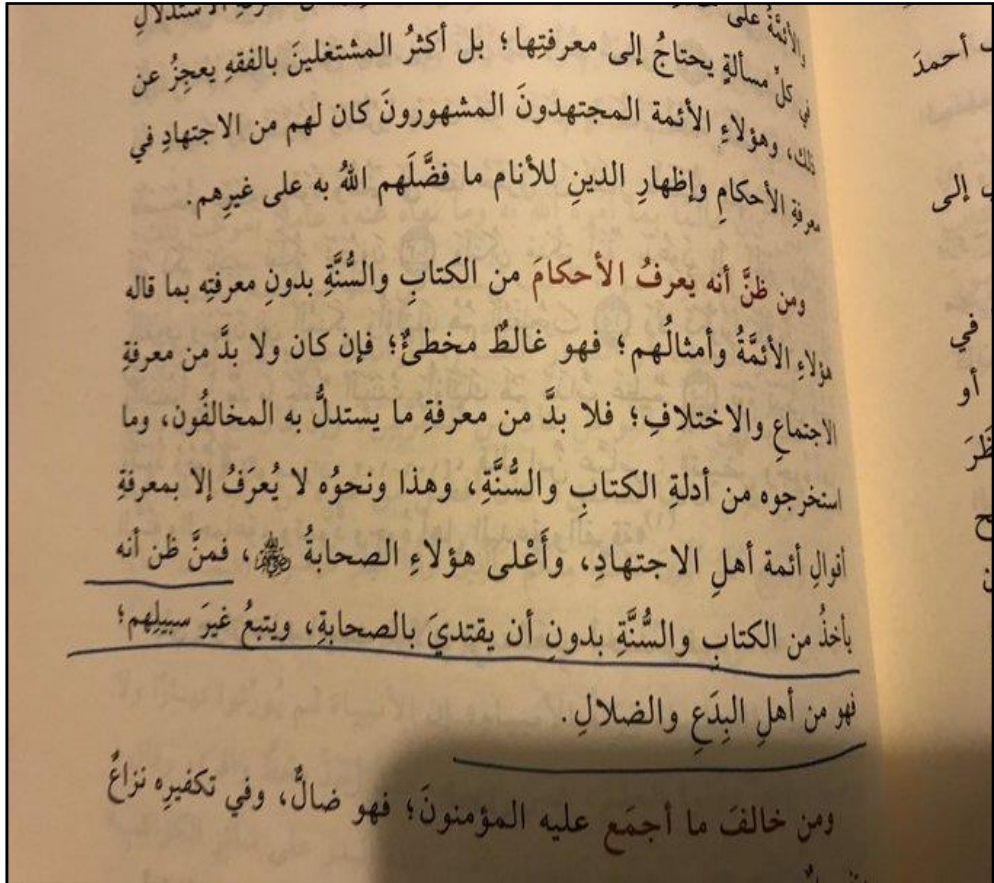 والأئمَّةُ على الاستدلالِ أحمدَ
في كلِّ مسألةٍ يحتاجُ إلى معرفتِها؛ بل أكثرُ المشتغلينَ بالفقهِ يعجِزُ عن
ذلك، وهؤلاءِ الأئمة المجتهدونَ المشهورونَ كان لهم من الاجتهادِ في
معرفةِ الأحكامِ وإظهارِ الدينِ للأنام ما فضَّلَهم اللهُ به على غيرِهم.
إلى
ومن ظنَّ أنه يعرفُ الأحكامَ من الكتابِ والسُّنَّةِ بدونِ معرفتِه بما قاله
هؤلاءِ الأئمَّةُ وأمثالُهم؛ فهو غالطٌ مخطئٌ؛ فإن كان ولا بدَّ من معرفةِ
في
الاجتماعِ والاختلافِ؛ فلا بدَّ من معرفةِ ما يستدلُّ به المخالفُون، وما
أو
استخرجوه من أدلةِ الكتابِ والسُّنَّةِ، وهذا ونحوُه لا يُعرَفُ إلا بمعرفةِ
أقوالِ أئمة أهلِ الاجتهادِ، وأَعْلى هؤلاءِ الصحابةُ ﷺ، فمنَّ ظن أنه
يأخذُ من الكتابِ والسُّنَّةِ بدونِ أن يقتديَ بالصحابةِ، ويتبعُ غيرَ سبيلِهم؛
فهو من أهلِ البِدَعِ والضلالِ.
ومن خالفَ ما أجمَع عليه المؤمنونَ؛ فهو ضالٌّ، وفي تكفيرِه نزاعٌ